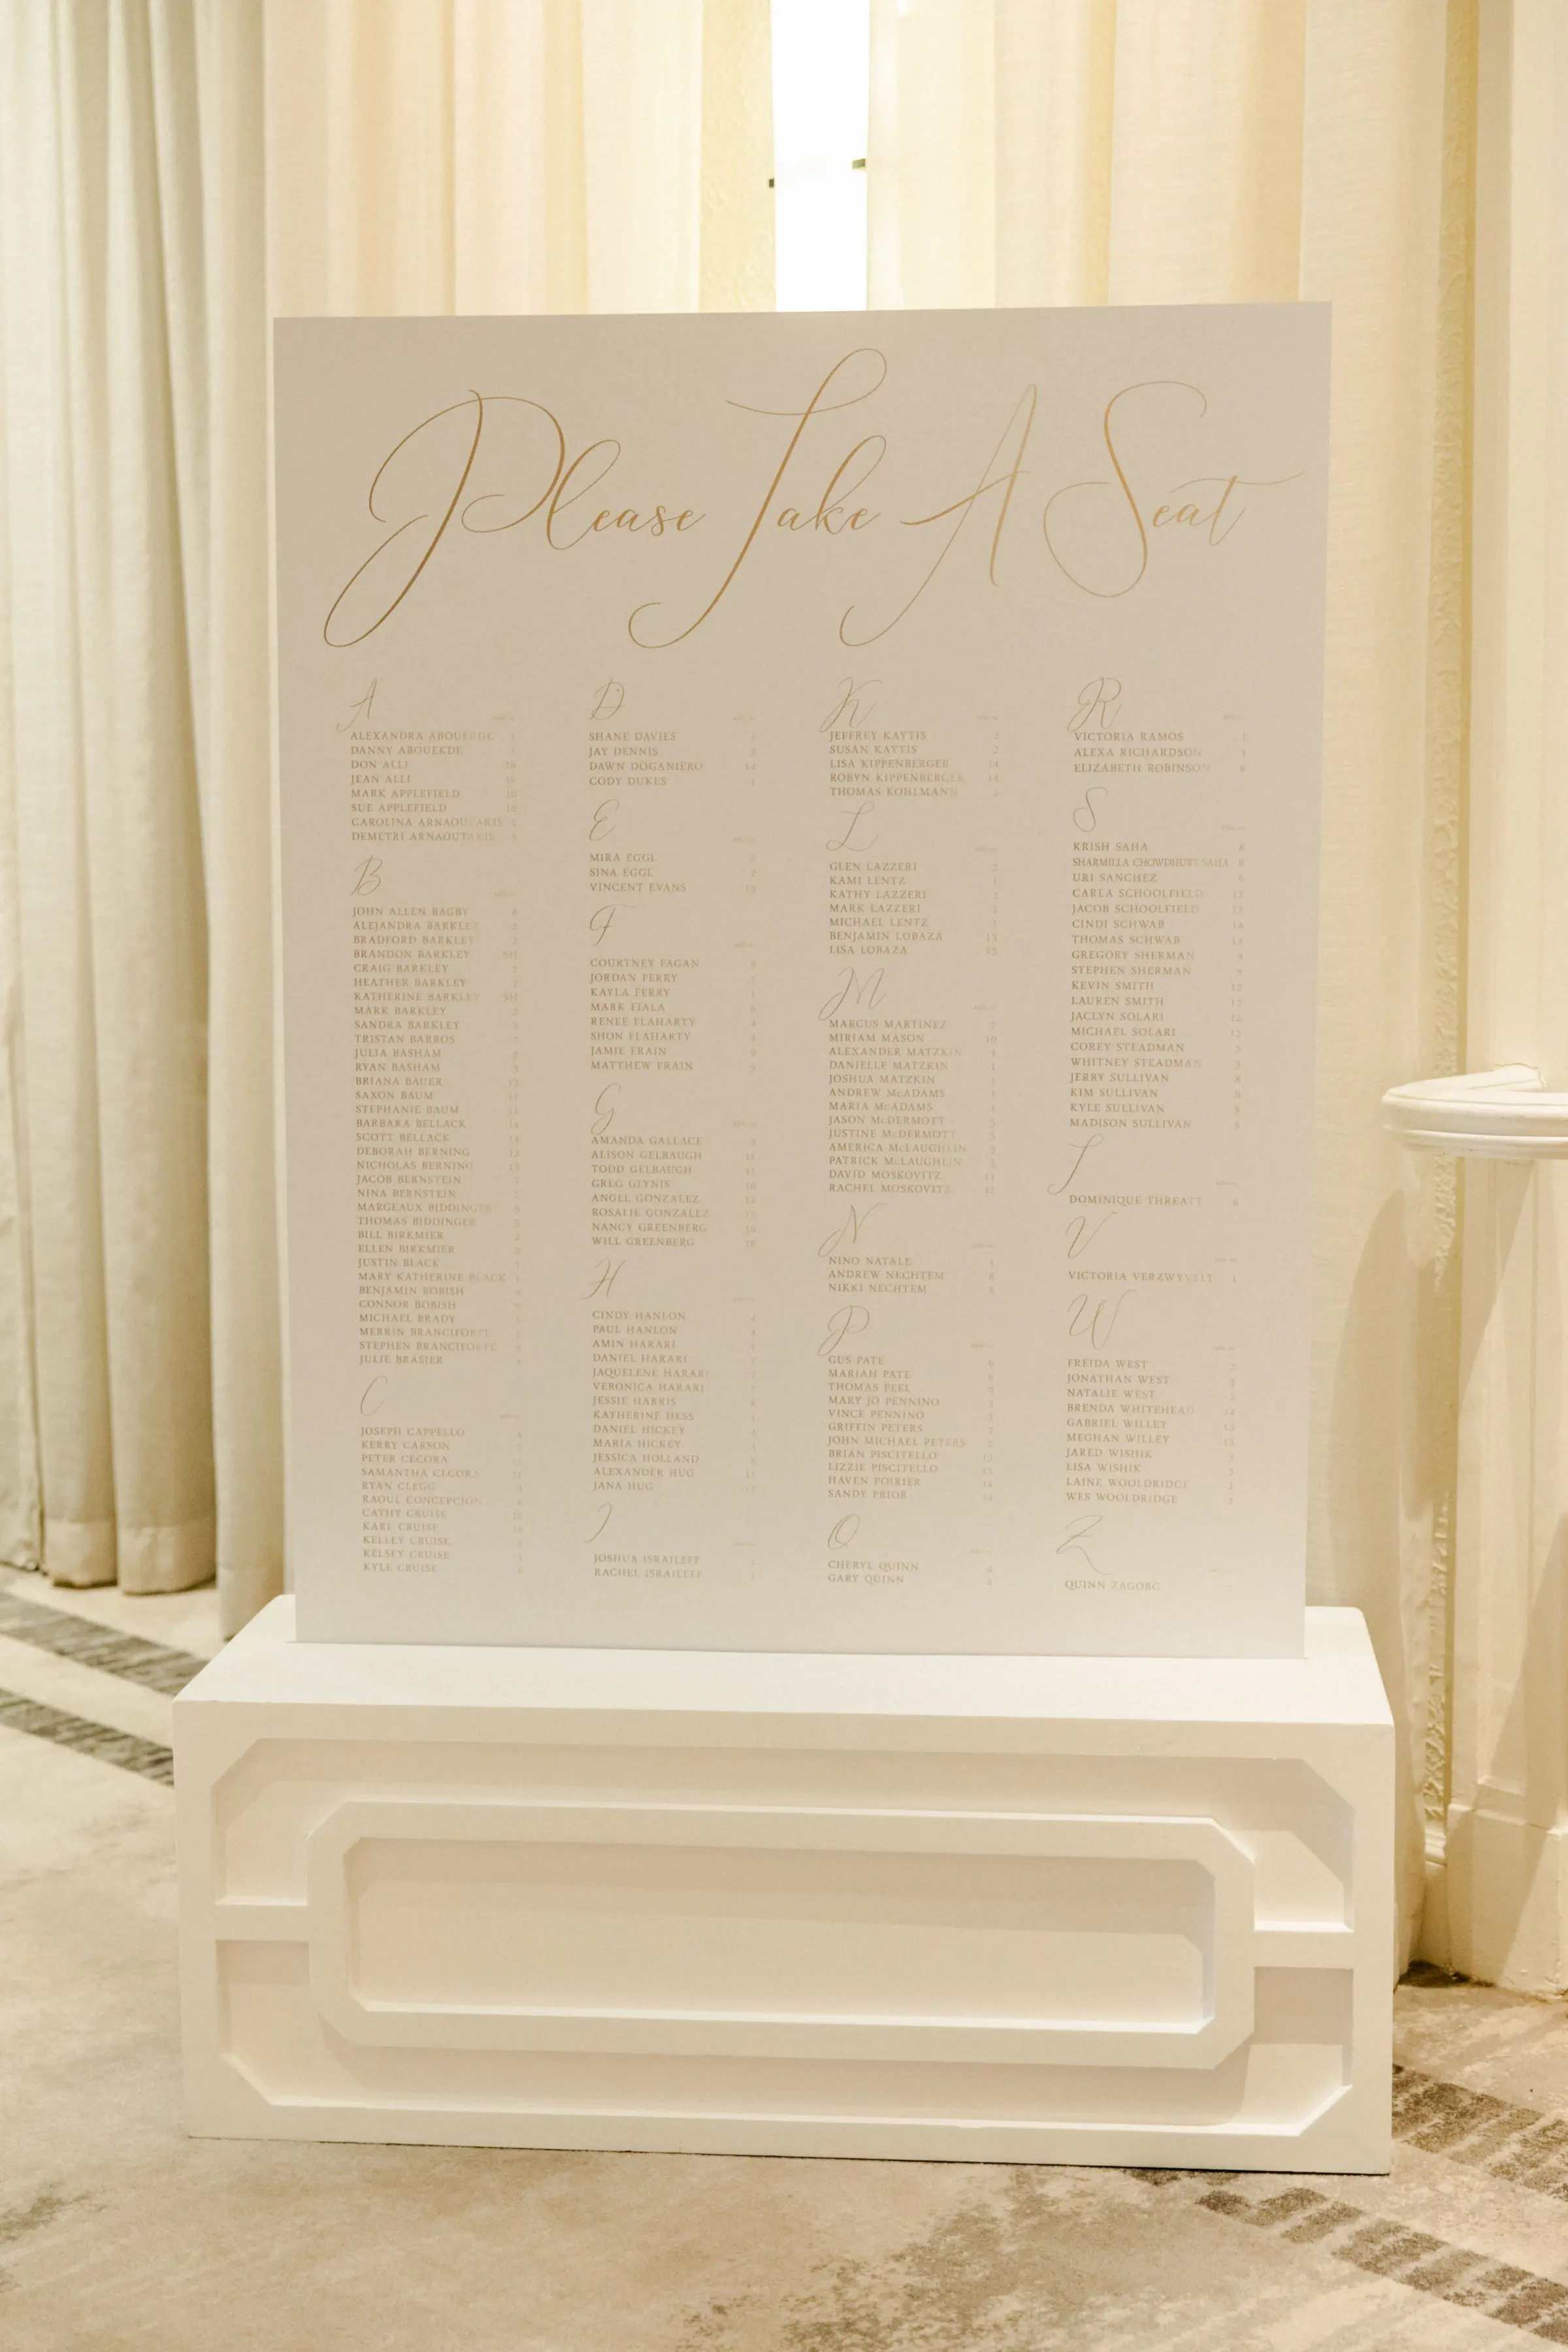 Please Take A Seat
A
ALEXANDRA ABOUEKDE
DANNY ABOUEKDE
DON ALLI 10
JEAN ALLI 10
MARK APPLEFIELD 10
SUE APPLEFIELD 10
CAROLINA ARNAOUTAKIS
DEMETRI ARNAOUTAKIS
B
JOHN ALLEN BAGBY 8
ALEJANDRA BARKLEY 2
BRADFORD BARKLEY 2
BRANDON BARKLEY SH
CRAIG BARKLEY 2
HEATHER BARKLEY 2
KATHERINE BARKLEY SH
MARK BARKLEY 2
SANDRA BARKLEY 2
TRISTAN BARROS
JULIA BASHAM
RYAN BASHAM
BRIANA BAUER 13
SAXON BAUM 11
STEPHANIE BAUM 11
BARBARA BELLACK 14
SCOTT BELLACK 14
DEBORAH BERNING 13
NICHOLAS BERNING 13
JACOB BERNSTEIN
NINA BERNSTEIN
MARGEAUX BIDDINGER 5
THOMAS BIDDINGER 5
BILL BIRKMIER
ELLEN BIRKMIER
JUSTIN BLACK
MARY KATHERINE BLACK
BENJAMIN BOBISH
CONNOR BOBISH
MICHAEL BRADY
MERRIN BRANCIFORTE
STEPHEN BRANCIFORTE
JULIE BRASIER
C
JOSEPH CAPPELLO
KERRY CARSON
PETER CECORA 11
SAMANTHA CECORA 11
RYAN CLEGG
RAOUL CONCEPCION
CATHY CRUISE 10
KARL CRUISE 10
KELLEY CRUISE
KELSEY CRUISE
KYLE CRUISE 8
D
SHANE DAVIES
JAY DENNIS
DAWN DOGANIERO 14
CODY DUKES
E
MIRA EGGL 2
SINA EGGL 2
VINCENT EVANS 13
F
COURTNEY FAGAN 9
JORDAN FERRY
KAYLA FERRY
MARK FIALA 6
RENEE FLAHARTY 4
SHON FLAHARTY 4
JAMIE FRAIN 9
MATTHEW FRAIN 9
G
AMANDA GALLACE 9
ALISON GELBAUGH 11
TODD GELBAUGH 11
GREG GLYNIS 10
ANGEL GONZALEZ 12
ROSALIE GONZALEZ 12
NANCY GREENBERG 10
WILL GREENBERG 10
H
CINDY HANLON 4
PAUL HANLON 4
AMIN HARARI
DANIEL HARARI
JAQUELENE HARARI
VERONICA HARARI
JESSIE HARRIS
KATHERINE HESS
DANIEL HICKEY
MARIA HICKEY
JESSICA HOLLAND
ALEXANDER HUG
JANA HUG
I
JOSHUA ISRAILEFF
RACHEL ISRAILEFF
K
JEFFREY KAYTIS 2
SUSAN KAYTIS 2
LISA KIPPENBERGER 14
ROBYN KIPPENBERGER 14
THOMAS KOHLMANN 2
L
GLEN LAZZERI 2
KAMI LENTZ 1
KATHY LAZZERI 2
MARK LAZZERI 2
MICHAEL LENTZ 1
BENJAMIN LOBAZA 13
LISA LOBAZA 13
M
MARCUS MARTINEZ 7
MIRIAM MASON 10
ALEXANDER MATZKIN 1
DANIELLE MATZKIN 1
JOSHUA MATZKIN 1
ANDREW McADAMS 1
MARIA McADAMS 1
JASON McDERMOTT 5
JUSTINE McDERMOTT 5
AMERICA McLAUGHLIN
PATRICK McLAUGHLIN
DAVID MOSKOVITZ 11
RACHEL MOSKOVITZ 11
N
NINO NATALE
ANDREW NECHTEM 8
NIKKI NECHTEM 8
P
GUS PATE
MARIAH PATE
THOMAS PEEL
MARY JO PENNINO
VINCE PENNINO
GRIFFIN PETERS
JOHN MICHAEL PETERS
BRIAN PISCITELLO 13
LIZZIE PISCITELLO 13
HAVEN POIRIER 14
SANDY PRIOR 14
Q
CHERYL QUINN 4
GARY QUINN 4
R
VICTORIA RAMOS 1
ALEXA RICHARDSON 1
ELIZABETH ROBINSON 6
S
KRISH SAHA 8
SHARMILLA CHOWDHURY SAHA 8
URI SANCHEZ 6
CARLA SCHOOLFIELD 12
JACOB SCHOOLFIELD 12
CINDI SCHWAB 14
THOMAS SCHWAB 14
GREGORY SHERMAN 9
STEPHEN SHERMAN 9
KEVIN SMITH 12
LAUREN SMITH 12
JACLYN SOLARI 12
MICHAEL SOLARI 12
COREY STEADMAN 3
WHITNEY STEADMAN 3
JERRY SULLIVAN 8
KIM SULLIVAN 8
KYLE SULLIVAN 8
MADISON SULLIVAN 8
T
DOMINIQUE THREATT 6
V
VICTORIA VERZWYVELT 1
W
FREIDA WEST 2
JONATHAN WEST 2
NATALIE WEST 2
BRENDA WHITEHEAD 14
GABRIEL WILLEY 13
MEGHAN WILLEY 13
JARED WISHIK 3
LISA WISHIK 3
LAINE WOOLDRIDGE 2
WES WOOLDRIDGE 2
Z
QUINN ZAGORC